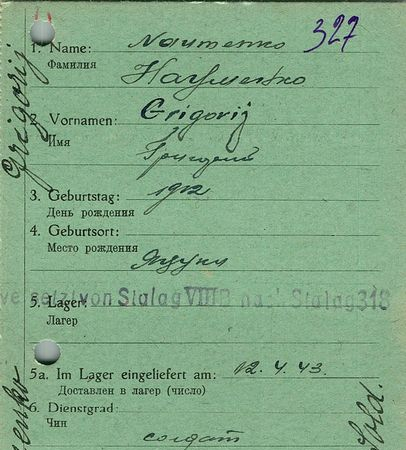 327
1. Name: Naumenko
Фамилия
Науменко
2. Vornamen: Grigorij
Имя
Григорий
3. Geburtstag: 1912
День рождения
4. Geburtsort:
Место рождения
versetzt von Stalag VIII B nach Stalag 318
5. Lager:
Лагерь
5a. Im Lager eingeliefert am: 12. 4. 43.
Доставлен в лагерь (число)
6. Dienstgrad:
Чин
солдат
Grigorij
enko
Sold.